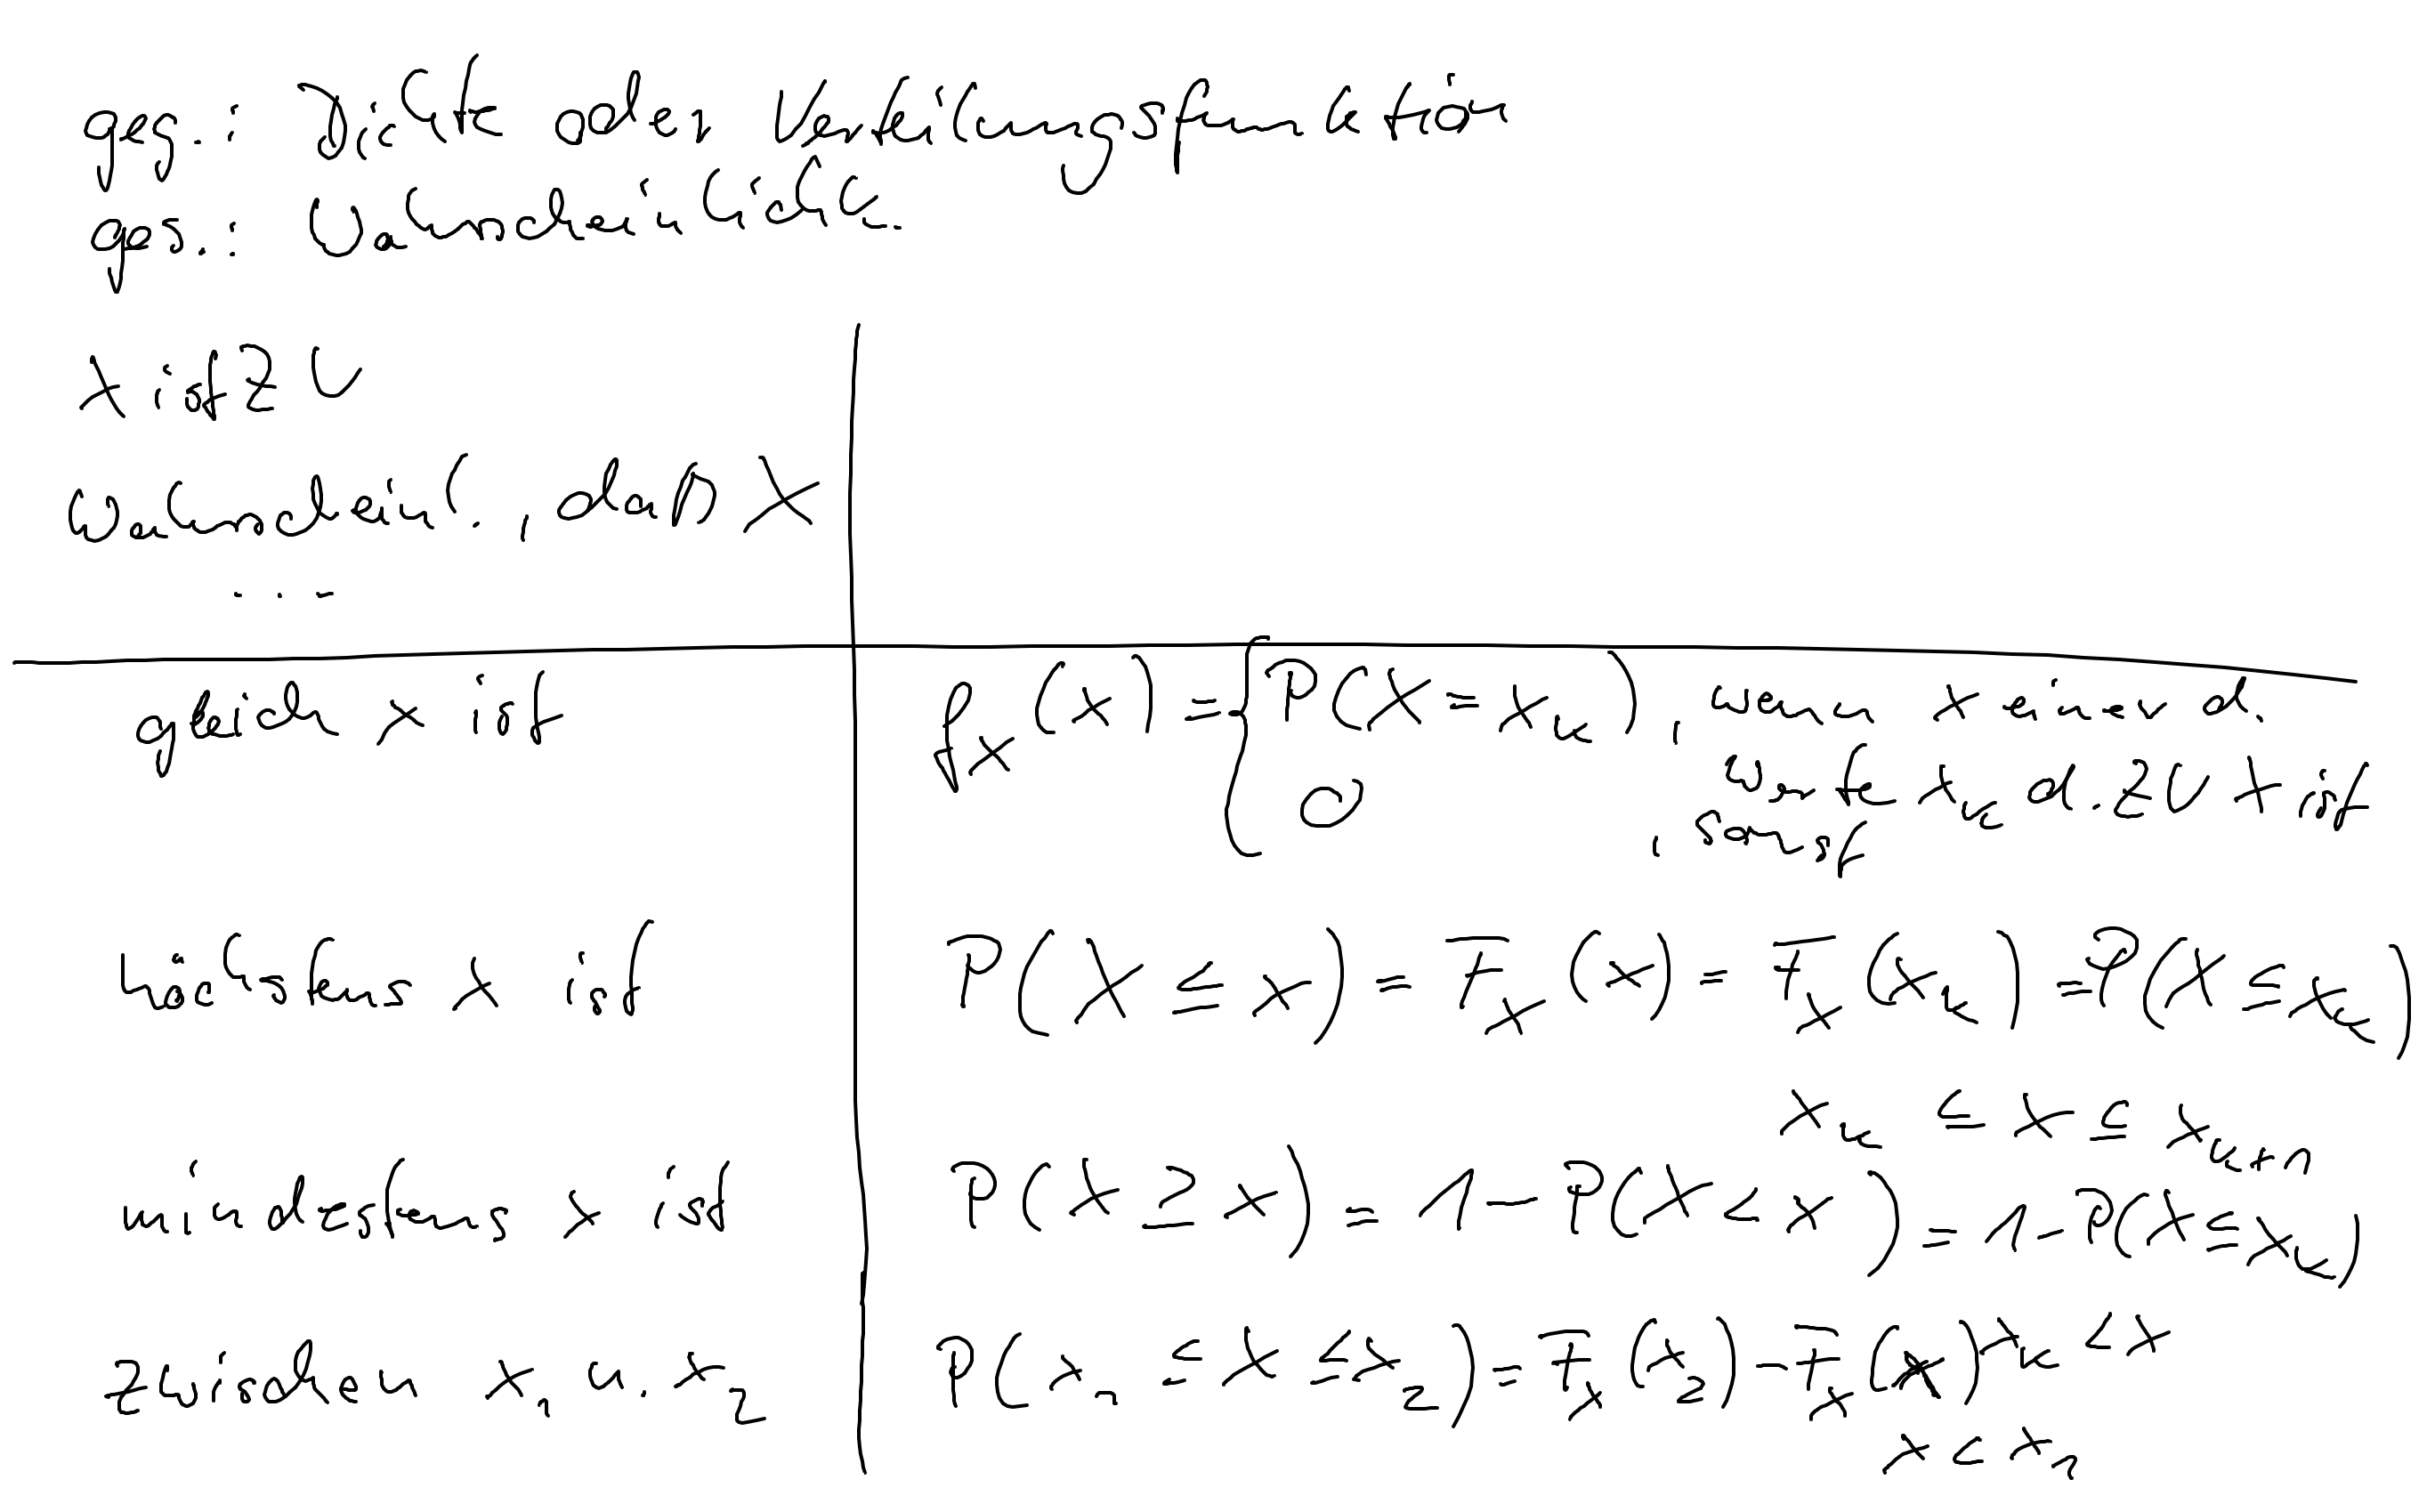 geg.: Dichte oder Verteilungsfunktion
ges.: Wahrscheinlichk.
X ist ZV
Wahrscheinl., daß X
...
gleich x ist
f_X(x) = { P(X = x_k) , wenn x einer d. Werte x_k d. ZV X ist
0 , sonst
höchstens x ist
P(X ≤ x) = F_X(x) = F_X(x_k) = P(X ≤ x_k)
x_k ≤ x ≤ x_{k+1}
mindestens x ist
P(X ≥ x) = 1 - P(X < x) = 1 - P(X ≤ x_k)
x_k < x
zwischen x_1 u. x_2
P(x_1 ≤ X ≤ x_2) = F_X(x_2) - F_X(x)
x < x_1